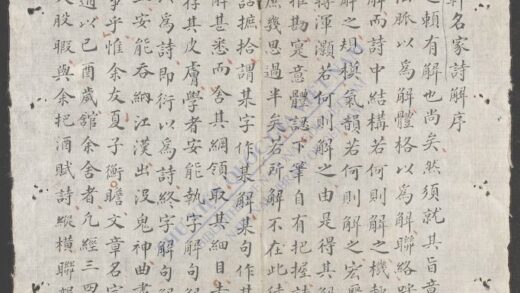 名家詩解序
之賴有解也尚矣然須就其旨意
脈以為解體格以為解聯絡
解而詩中結構若何則解之機
解之規模氣韻若何則解之宏
渾灝若何則解之由是得其解
推勘寔意體認下筆自有把握
庶幾思過半矣若所解不在此
語摭拾謂某字作某解某句作
解甚悉而舍其綱領取其細目
存其皮膚學者安能執字解句
以為詩即衍以為詩終字解句
安能吞納江漢出沒鬼神曲
乎惟余友夏子衡瞻文章名
適以己酉歲館余舍者凡經三四
股暇與余把酒賦詩縱橫聯